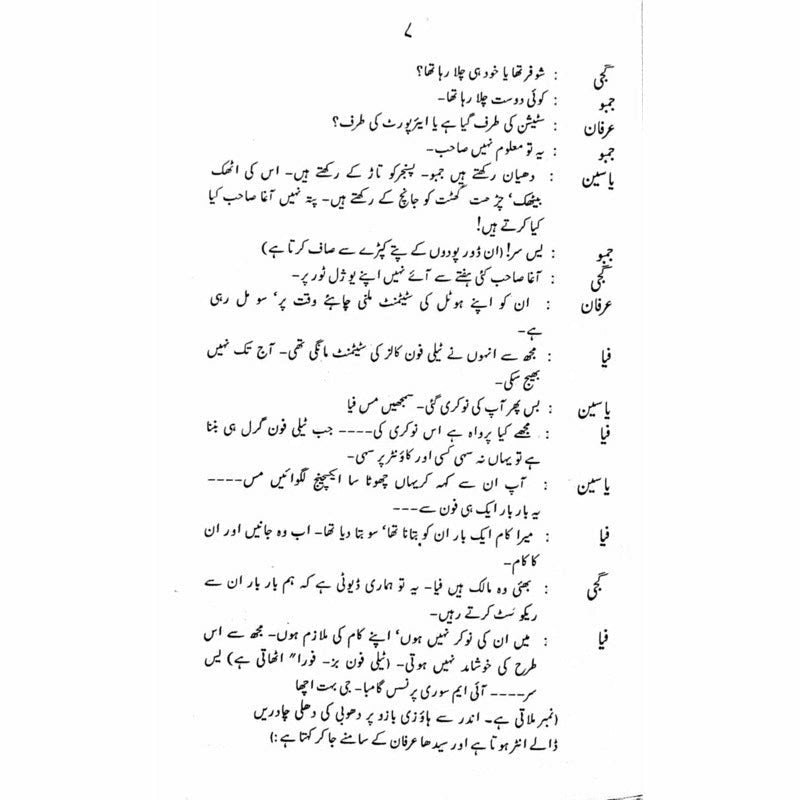 ۷
گجی : شوفر تھا یا خود ہی چلا رہا تھا؟
جمبو : کوئی دوست چلا رہا تھا۔
عرفان : سٹیشن کی طرف گیا ہے یا ایئرپورٹ کی طرف؟
جمبو : یہ تو معلوم نہیں صاحب۔
یاسین : دھیان رکھتے ہیں جمبو۔ پسنجر کو تاڑ کے رکھتے ہیں۔ اس کی اٹھک
بیٹھک‘ چڑھت گھٹت کو جانچ کے رکھتے ہیں۔ پتہ نہیں آغا صاحب کیا
کیا کرتے ہیں!
جمبو : یس سر! (ان ڈور پودوں کے پتے کپڑے سے صاف کرتا ہے)
گجی : آغا صاحب کئی ہفتے سے آئے نہیں اپنے یوژل ٹور پر۔
عرفان : ان کو اپنے ہوٹل کی سٹیٹمنٹ ملنی چاہئے وقت پر‘ سو مل رہی
ہے۔
فیا : مجھ سے انہوں نے ٹیلی فون کالز کی سٹیٹمنٹ مانگی تھی۔ آج تک نہیں
بھیج سکی۔
یاسین : بس پھر آپ کی نوکری گئی۔ سمجھیں مس فیا
فیا : مجھے کیا پرواہ ہے اس نوکری کی۔۔۔۔ جب ٹیلی فون گرل ہی بننا
ہے تو یہاں نہ سہی کسی اور کاؤنٹر پر سہی۔
یاسین : آپ ان سے کہہ کر یہاں چھوٹا سا ایکسچینج لگوائیں مس۔۔۔۔
یہ بار بار ایک ہی فون سے۔۔۔
فیا : میرا کام ایک بار ان کو بتانا تھا‘ سو بتا دیا تھا۔ اب وہ جانیں اور ان
کا کام۔
گجی : بھئی وہ مالک ہیں فیا۔ یہ تو ہماری ڈیوٹی ہے کہ ہم بار بار ان سے
ریکوئسٹ کرتے رہیں۔
فیا : میں ان کی نوکر نہیں ہوں‘ اپنے کام کی ملازم ہوں۔ مجھ سے اس
طرح کی خوشامد نہیں ہوتی۔ (ٹیلی فون بز۔ فورا" اٹھاتی ہے) یس
سر۔۔۔۔ آئی ایم سوری پرنس گامبا۔ جی بہت اچھا
(نمبر ملاتی ہے۔ اندر سے ہاؤزی بازو پر دھوبی کی دھلی چادریں
ڈالے انٹر ہوتا ہے اور سیدھا عرفان کے سامنے جا کر کہتا ہے:)